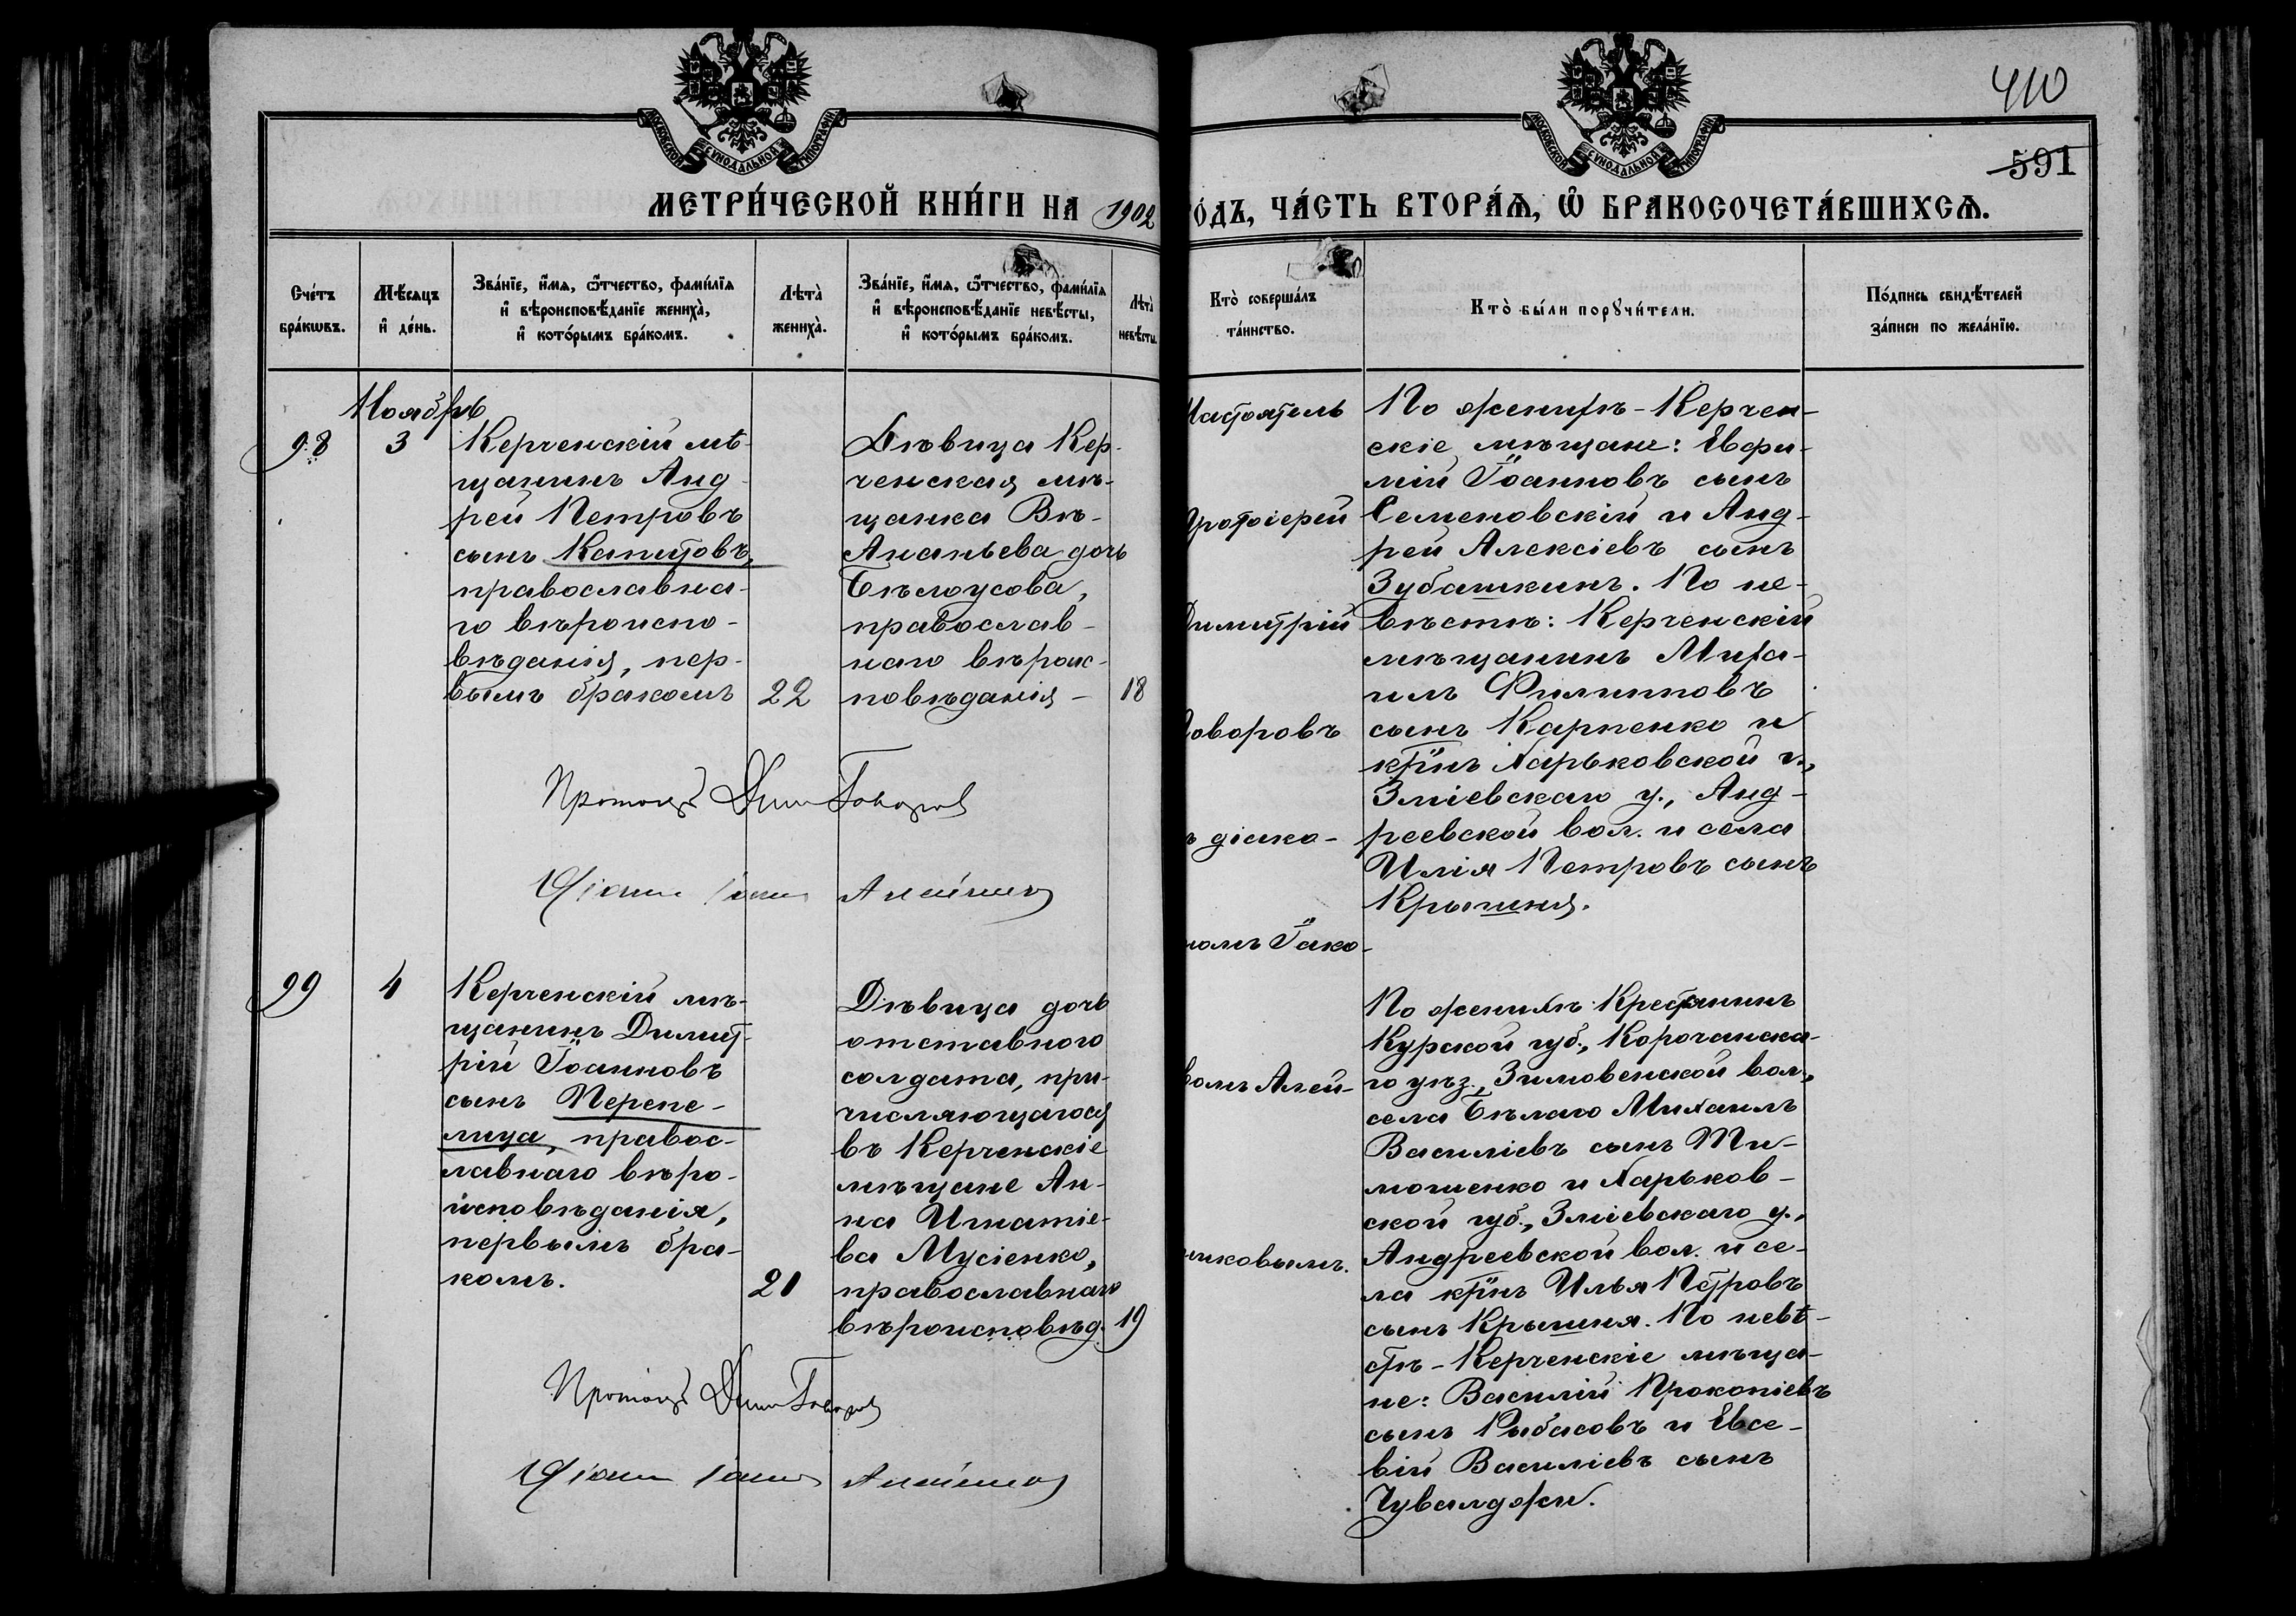 410
591
МОСКОВСКОЙ СѴНОДАЛЬНОЙ ТИПОГРАФІИ
МОСКОВСКОЙ СѴНОДАЛЬНОЙ ТИПОГРАФІИ
МЕТРИ́ЧЕСКОЙ КНИ́ГИ НА 1902
О́ДЪ, ЧА́СТЬ ВТОРА́Ѧ, Ѡ҆ БРАКОСОЧЕТА́ВШИХСѦ.
Сче́тъ
бра́кѡвъ.
Мѣ́сѧцъ
и҆ де́нь.
Зва́нїе, и҆́мѧ, ѻ҆́тчество, фами́лїѧ
и҆ вѣроисповѣ́данїе жениха̀,
и҆ кото́рымъ бра́комъ.
Лѣта̀
жениха̀.
Зва́нїе, и҆́мѧ, ѻ҆́тчество, фами́лїѧ
и҆ вѣроисповѣ́данїе невѣ́сты,
и҆ кото́рымъ бра́комъ.
Лѣта̀
невѣ́сты.
Кто̀ соверша́лъ
та́инство.
Кто̀ бы́ли порꙋчи́тели.
По́дпись свидѣ́телей
за́писи по жела́нїю.
Ноябрь
98
3
Керченскій мѣ-
щанинъ Анд-
рей Петровъ
сынъ Капитовъ,
православна-
го вѣроиспо-
вѣданія, пер-
вымъ бракомъ
22
Дѣвица Кер-
ченская мѣ-
щанка Вѣ-
Ананьева дочь
Бѣлоусова,
православ-
наго вѣроис-
повѣданія -
18
Настоятель
Протоіерей
Димитрій
Говоровъ
ъ діако-
номъ Іако-
вомъ Алей-
никовымъ.
По женихѣ - Керчен-
скіе мѣщане: Евфи-
мій Іоанновъ сынъ
Семеновскій и Анд-
рей Алексіевъ сынъ
Зубашкинъ. По не-
вѣстѣ: Керченскій
мѣщанинъ Миха-
илъ Филипповъ
сынъ Карпенко и
кр̃нъ Харьковской г.,
Зміевскаго у., Анд-
реевской вол. и села
Илія Петровъ сынъ
Крышня.
99
4
Керченскій мѣ-
щанинъ Димит-
рій Іоанновъ
сынъ Перепе-
лица, правос-
лавнаго вѣро-
исповѣданія,
первымъ бра-
комъ.
21
Дѣвица дочь
отставного
солдата, при-
числяющагося
въ Керченскіе
мѣщане Ан-
на Игнатіе-
ва Мусіенко,
православнаго
вѣроисповѣд.
19
По женихѣ: Крестянинъ
Курской губ., Корочанска-
го уѣз., Зимовенской вол.,
села Бѣлаго Михаилъ
Василіевъ сынъ Ти-
мошенко и Харьков-
ской губ., Зміевскаго у.,
Андреевской вол. и се-
ла кр̃нъ Илья Петровъ
сынъ Крышня. По невѣ-
стѣ - Керченскіе мѣща-
не: Василій Прокопіевъ
сынъ Рыбасовъ и Евсе-
вій Василіевъ сынъ
Чувалджи.